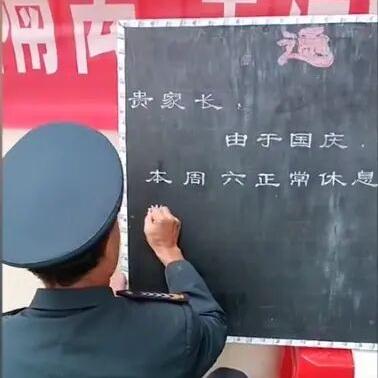 通
贵家长，
由于国庆，
本周六正常休息